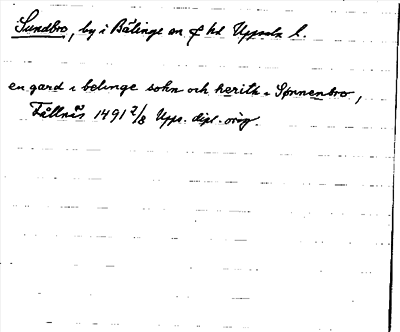 Sundbro, by i Bälinge sn o hd Uppsala l.
en gard i belinge sokn och herith i Sønnenbro,
Fållnäs 1491 2/8 Upps. dipl. orig.